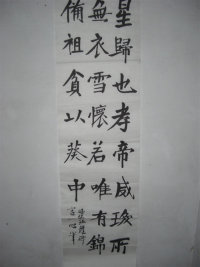 星歸也孝帝威瑗所
無衣雪懷若唯有錦
備祖貪以葵中